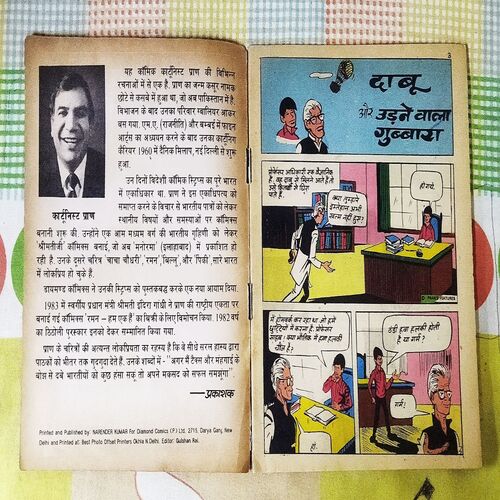 यह कॉमिक कार्टूनिस्ट प्राण की विभिन्न
रचनाओं में से एक है। प्राण का जन्म कसूर नामक
छोटे से कसबे में हुआ था, जो अब पाकिस्तान में है.
विभाजन के बाद उनका परिवार ग्वालियर आकर
बस गया. एम.ए. (राजनीति) और बम्बई में फाइन
आर्ट्स का अध्ययन करने के बाद उनका कार्टूनिंग
कैरियर 1960 में दैनिक मिलाप, नई दिल्ली से शुरू
हुआ.
उन दिनों विदेशी कॉमिक स्ट्रिप्स का पूरे भारत
में एकाधिकार था. प्राण ने इस एकाधिपत्य को
समाप्त करने के विचार से भारतीय पात्रों को लेकर
स्थानीय विषयों और समस्याओं पर कॉमिक्स
कार्टूनिस्ट प्राण
बनानी शुरू की. उन्होंने एक आम मध्यम वर्ग की भारतीय गृहिणी को लेकर
'श्रीमतीजी' कॉमिक्स बनाई, जो अब 'मनोरमा' (इलाहाबाद) में प्रकाशित हो
रही है. उनके दूसरे चरित्र 'चाचा चौधरी', 'रमन', 'बिल्लू', और 'पिंकी', सारे भारत
में लोकप्रिय हो चुके हैं.
डायमण्ड कॉमिक्स ने उनकी स्ट्रिप्स को पुस्तकबद्ध करके एक नया आयाम दिया.
1983 में स्वर्गीय प्रधान मंत्री श्रीमती इंदिरा गांधी ने प्राण की राष्ट्रीय एकता पर
बनाई गई कॉमिक्स 'रमन – हम एक हैं' का बिक्री के लिए विमोचन किया. 1982 वर्ष
का ठिठोली पुरस्कार इनको देकर सम्मानित किया गया.
प्राण के चरित्रों की अत्यन्त लोकप्रियता का रहस्य है कि वे सीधे सरल हास्य द्वारा
पाठकों को भीतर तक गुदगुदा देते हैं. उनके शब्दों में - "अगर मैं टैक्स और महंगाई के
बोझ से दबे भारतीयों को कुछ हंसा सकूं तो अपने मकसद को सफल समझूंगा".
—प्रकाशक
Printed and Published by: NARENDER KUMAR For Diamond Comics (P.) Ltd. 2715, Darya Ganj, New
Delhi and Printed at: Best Photo Offset Printers Okhla N.Delhi. Editor: Gulshan Rai.
3
दाबू
और उड़ने वाला
गुब्बारा
प्रोफेसर अधिकारी एक वैज्ञानिक
हैं. वह दाबू से मिलने आते हैं तो
उसे किताबों से घिरा
पाते हैं.
क्या तुम्हारे
इम्तेहान अभी
खत्म नहीं हुए?
हो गये.
© PRAN'S FEATURES
मैं होमवर्क कर रहा था. जो हमें
छुट्टियों में करना है. प्रोफेसर
साहब! क्या भौतिक में हवा हल्की
चीज़ है?
हां.
ठंडी हवा हल्की होती
है या गर्म?
गर्म!